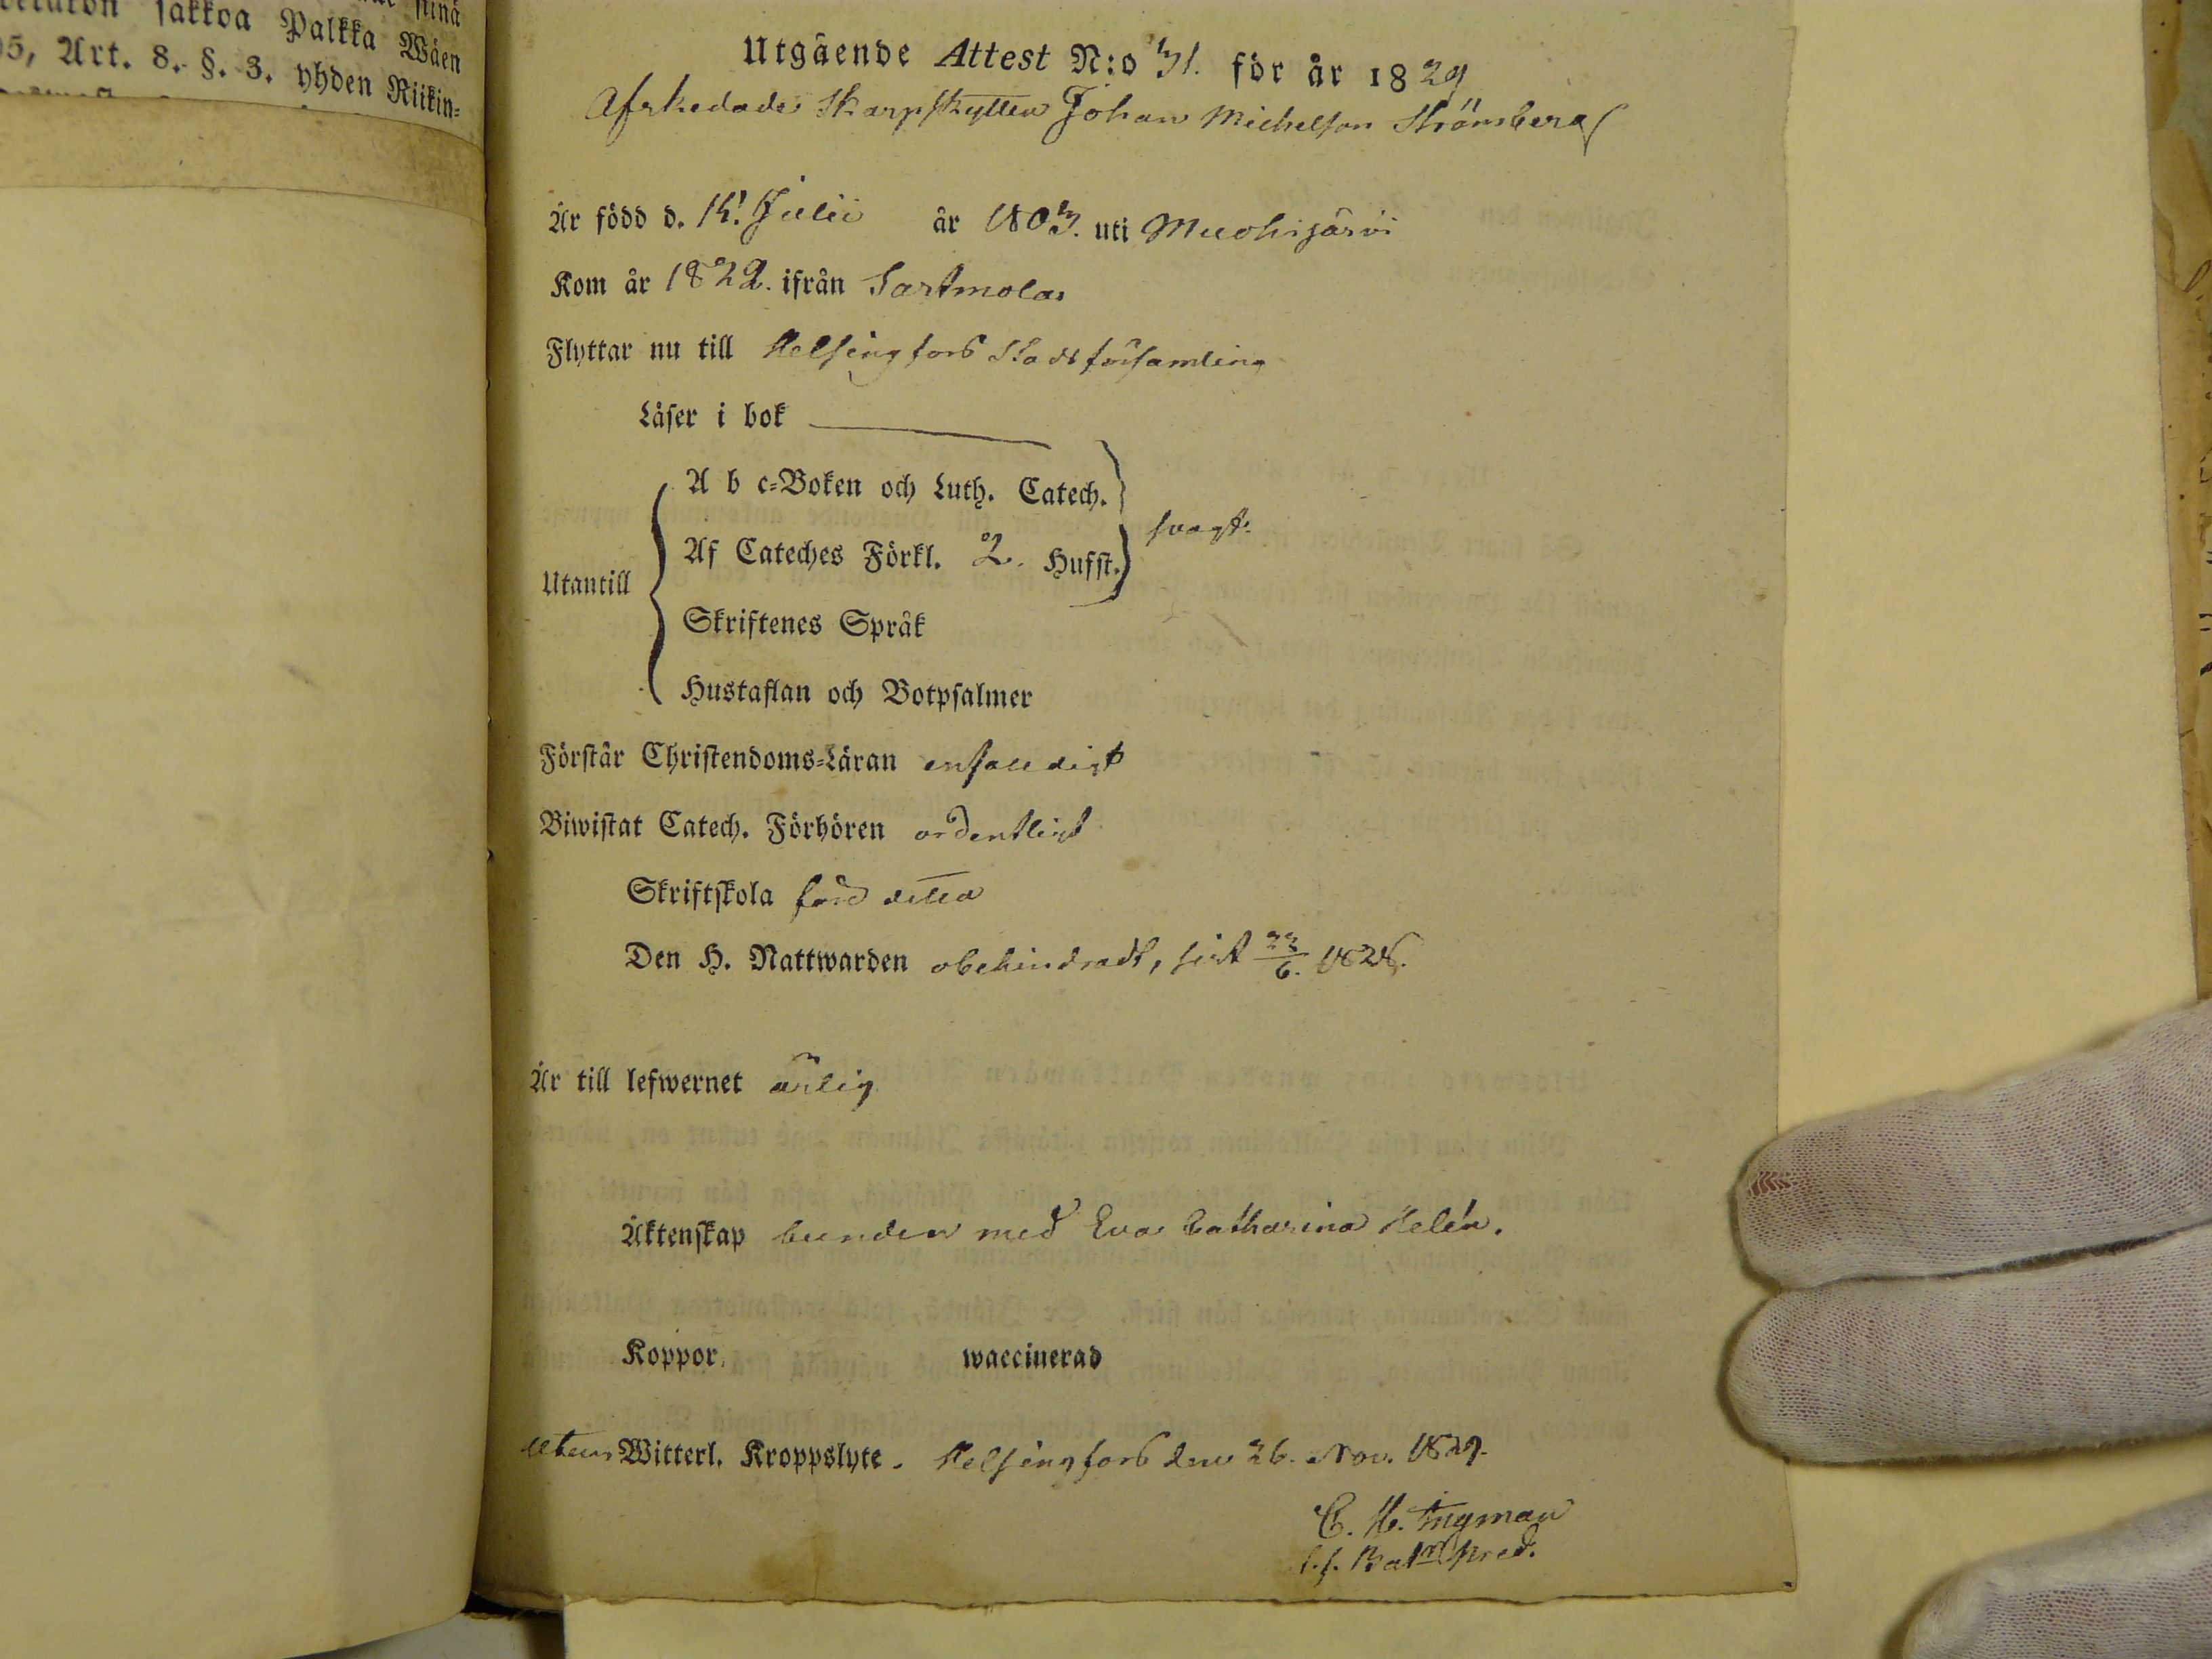 sinä
sakkoa Palkka Wäen
5, Art. 8. §. 3. yhden Riikin-
Utgående Attest N:o 31. för år 1829
Afskedade Skarpskytten Johan Michelsson Strömberg
Är född d. 14. Julii år 1803. uti Muohijärvi
Kom år 1822. ifrån Sastmola
Flyttar nu till Helsingfors Stadsförsamling
Läser i bok
A b c-Boken och Luth. Catech.
svagt.
Af Cateches Förkl. 2. Hufst.
Utantill
Skriftenes Språk
Hustaflan och Botpsalmer
Förstår Christendoms-Läran enfaldigt
Biwistat Catech. Förhören ordentligt
Skriftskola före detta
Den H. Nattwarden obehindradt, sist 22/6. 1828.
Är till lefwernet ärlig
Äktenskap bunden med Eva Catharina Helén.
Koppor. waccinerad
utan Witterl. Kroppslyte. Helsingfors den 26. Nov. 1829.
C. H. Ingman
Bat. pred.